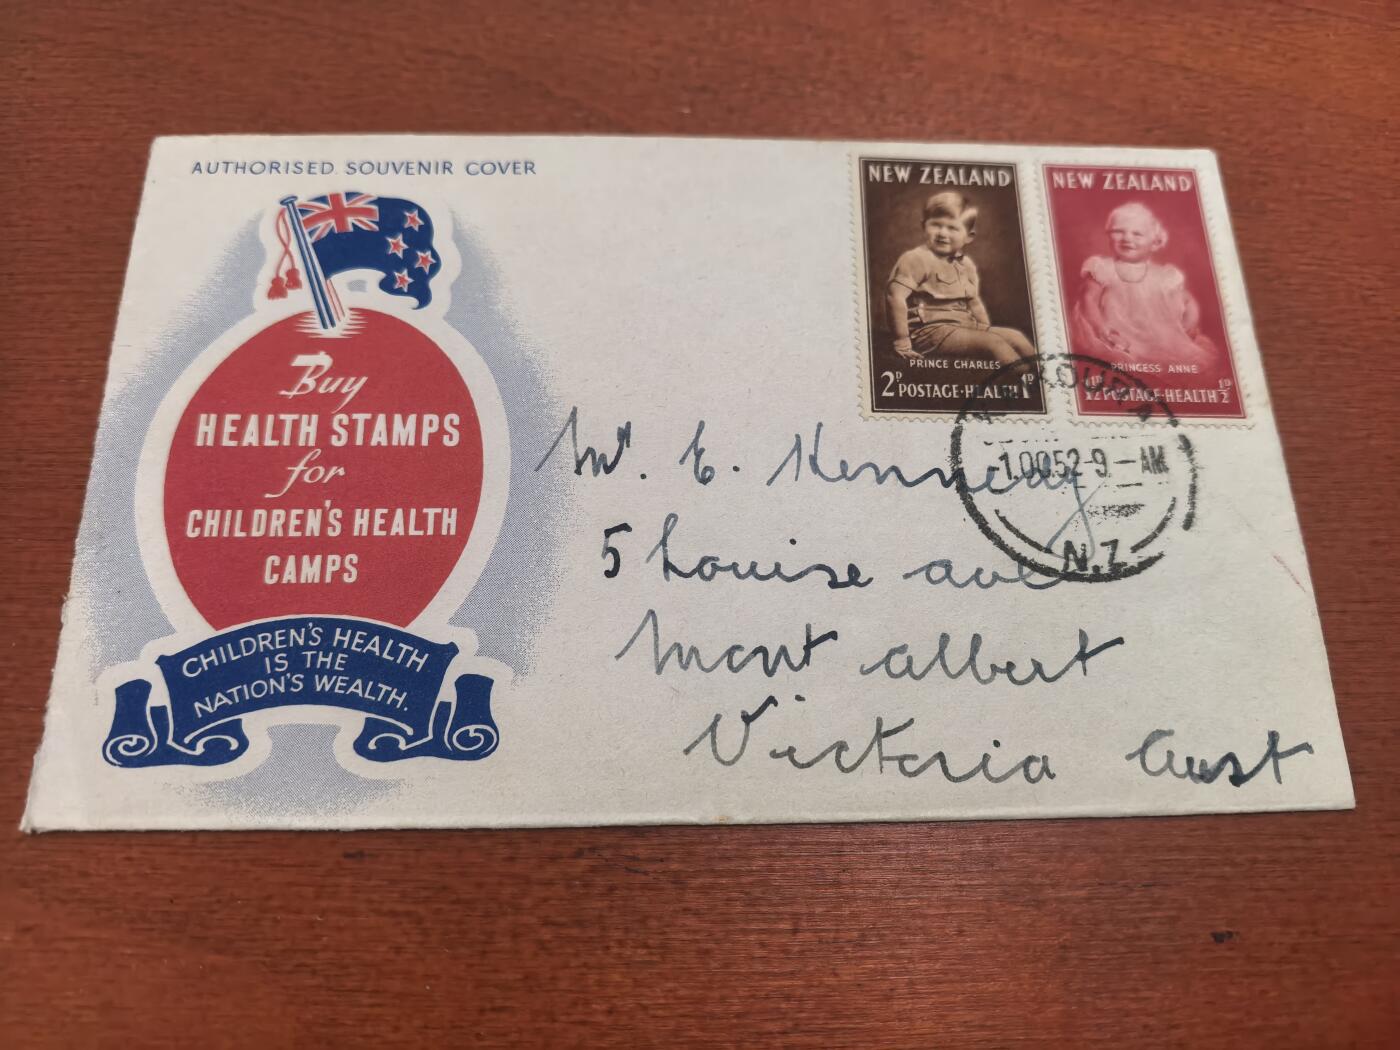 AUTHORISED SOUVENIR COVER
Buy
HEALTH STAMPS
for
CHILDREN'S HEALTH
CAMPS
CHILDREN'S HEALTH
IS THE
NATION'S WEALTH.
NEW ZEALAND
PRINCE CHARLES
2D POSTAGE·HEALTH 1D
NEW ZEALAND
PRINCESS ANNE
1½D POSTAGE·HEALTH ½D
-1.OC.52-9.-AM
N.Z.
Mr. E. Kennedy
5 Louise ave
Mont albert
Victoria Aust